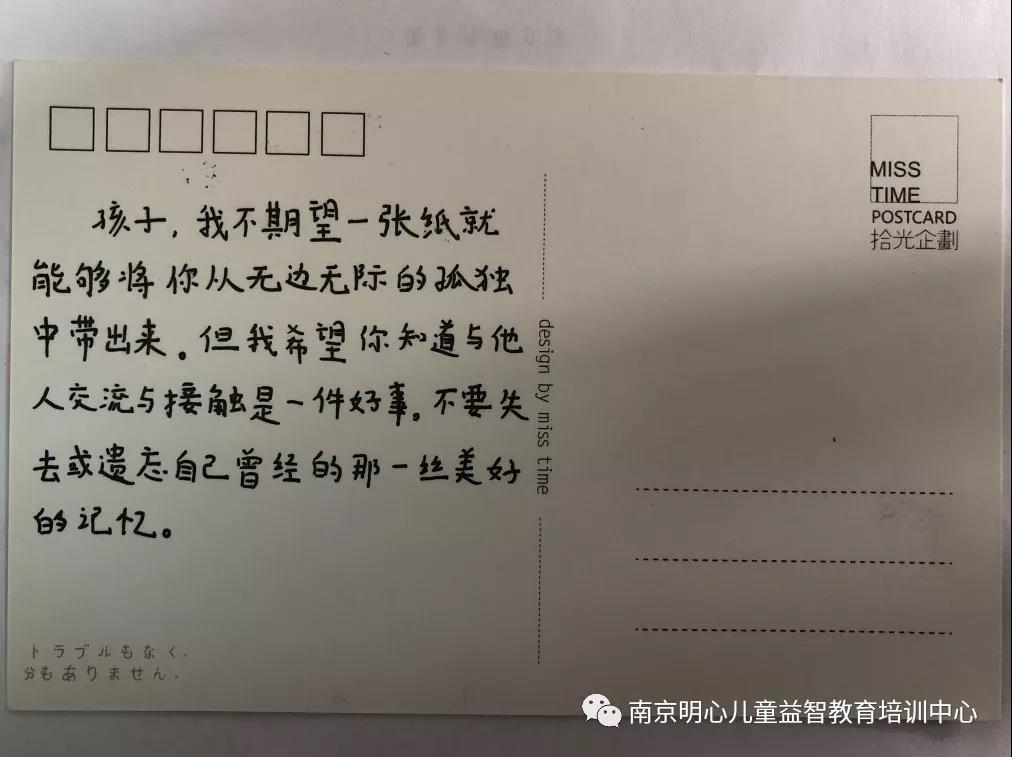 孩子，我不期望一张纸就
能够将你从无边无际的孤独
中带出来。但我希望你知道与他
人交流与接触是一件好事。不要失
去或遗忘自己曾经的那一丝美好
的记忆。
トラブルもなく、
分もありません.
design by miss time
MISS
TIME
POSTCARD
拾光企劃
南京明心儿童益智教育培训中心